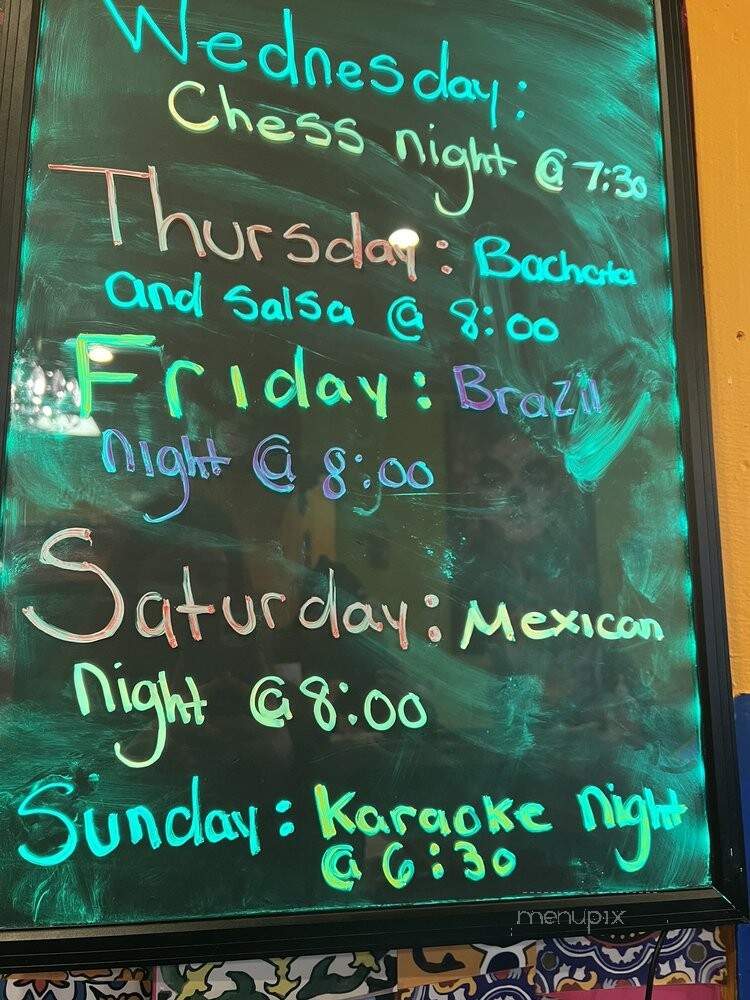 Wednesday:
Chess night @ 7:30
Thursday: Bachata
and Salsa @ 8:00
Friday: Brazil
night @ 8:00
Saturday: Mexican
night @ 8:00
Sunday: Karaoke night
@ 6:30
menupix